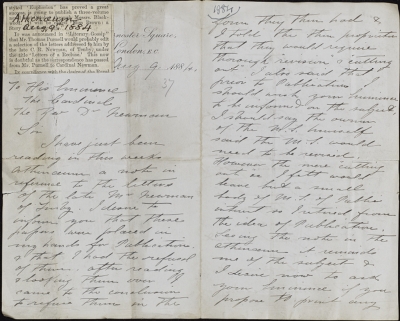 Athenaeum
Aug 9. 1884
styled "Euphorion" has proved a great
to publish a three-volume
Messrs. Black-
story
It was announced in "Literary Gossip"
that Mr. Thomas Purnell would probably edit
a selection of the letters addressed to him by
the late C. R. Newman, of Tenby, under
title "Letters of a Recluse."
is doubtful is the correspondence has passed
from Mr. Purnell to Cardinal Newman.
In accordance with the desire of the
Square,
London. E.C.
Aug 9. 1884.
37
To His Eminence
The Cardinal
The Rev Dr Newman
Sir
I have just been
reading in this weeks
Athenaeum a note in
reference to the letters
of the late Mr Newman
of Tenby. I desire to
inform you that those
papers were placed in
my hands for Publication,
& that I had the refusal
of them. after reading
& looking them over I
came to the conclusion
to refuse them on the
1884
Down they then had &
I told the then proprietor
that they would require
thorough revision & cutting
out. I also said that
prior to Publication
should ask your Eminence
to be informed on the subject
I should say the owner
of the M.S. himself
said the M.S. would
need to be revised.
However the mere cutting
out as I felt would
leave but a small
body of M.S. of Public
interest so I retired from
the idea of Publication.
Seeing the note in the
Athenaeum it reminds
me of the subject &
I desire now to ask
your Eminence if you
propose to print any